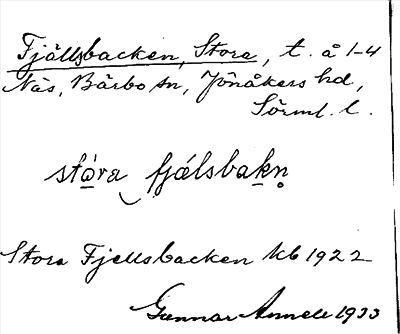 Fjällsbacken, Stora, t. å 1-4
Näs, Bärbo sn, Jönåkers hd,
Sörml. l.
stóra fjálsbakn̥
Stora Fjellsbacken kb 1922
Gunnar Annell 1933